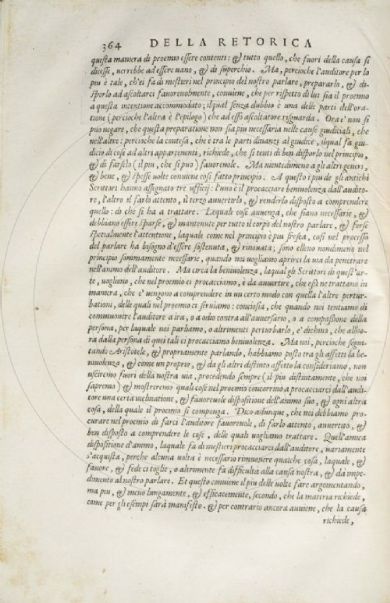 364 DELLA RETORICA
questa maniera di proemio essere contenti: & tutto quello, che fuori della causa si
dicesse, uerrebbe ad essere uano, & di superchio. Ma, percioche l'auditore per lo
piu è tale, ch'ei fa di mestieri nel principio del nostro parlare, prepararlo, & di-
sporlo ad ascoltarci fauoreuolmente, conuiene, che per rispetto di lui sia il proemio
a questa intentione accommodato; il qual senza dubbio è una delle parti dell'ora-
tione (percioche l'altra è l'epilogo) che ad esso ascoltatore risguarda. Ora e' non si
può negare, che questa preparatione non sia piu necessaria nelle cause giudiciali, che
nell'altre: percioche la contesa, che è tra le parti dinanzi al giudice, iqual fa giu-
dicio di cose ad altri appartenenti, richiede, che si tenti di ben disporlo nel principio,
& di farselo (il piu, che si puo) fauoreuole. Ma nientedimeno a gli altri generi
bene, & spesse uolte conuiene cosi fatto principio. A questo i piu de gli antichi
Scrittori hanno assegnato tre ufficij: l'uno è il procacciare beniuolenza dall'audito-
re, l'altro il farlo attento, il terzo auuertirlo, & renderlo disposto a comprendere
quello: di che si ha a trattare. Lequali cose auuenga, che siano necessarie, &
debbiano essere sparse, & mantenute per tutto il corpo del nostro parlare, & forse
spetialmente l'attentione, laquale come nel principio è piu fresca, cosi nel processo
del parlare ha bisogno d'essere sostenuta, & rinouata; sono elleno nondimeno nel
principio sommamente necessarie, quando noi uogliamo aprirci la uia da penetrare
nell'animo dell'auditore. Ma circa la beniuolenza, laqual gli Scrittori di quest'ar-
te, uogliono, che nel proemio ci procacciamo, è da auuertire, che essi ne trattano in
maniera, che e' uengono a comprendere in un certo modo con quella l'altre pertur-
bationi, delle quali nel proemio ci seruiamo: conciosia, che quando noi tentiamo di
commouere l'auditore a ira, o a odio contra all'auersario, o a compassione della
persona, per laquale noi parliamo, o altrimenti perturbarlo, e' dichino, che allho-
ra dalla persona di quei tali ci procacciamo beniuolenza. Ma noi, percioche segui-
tando Aristotele, & propriamente parlando, habbiamo posto tra gli affetti la be-
niuolenza, & come un proprio, & da gli altri distinto affetto la consideriamo, non
usciremo fuori della nostra uia, procedendo sempre (il piu distintamente, che noi
sapremo) & mostreremo quali cose nel proemio concorrino a procacciarci dall'audi-
tore una certa inclinatione, & fauoreuole dispositione dell'animo suo, & ogni altra
cosa, della quale il proemio si componga. Dico adunque, che noi debbiamo pro-
curare nel proemio di farci l'auditore fauoreuole, di farlo attento, auuertito, &
ben disposto a comprendere le cose, delle quali uogliamo trattare. Quell'amica
dispositione d'animo, laquale fa di mestieri procacciarci dall'auditore, uariamente
s'acquista, perche alcuna uolta è necessario rimouere qualche cosa, laquale, &
fauore, & fede ci toglie, o altrimenti fa difficultà alla causa nostra, & da impe-
dimento al nostro parlare. Et questo conuiene il piu delle uolte fare argomentando,
ma piu, & meno lungamente, & efficacemente, secondo, che la materia richiede,
come per gli esempi sarà manifesto. & per contrario ancora auuiene, che la causa
richiede,